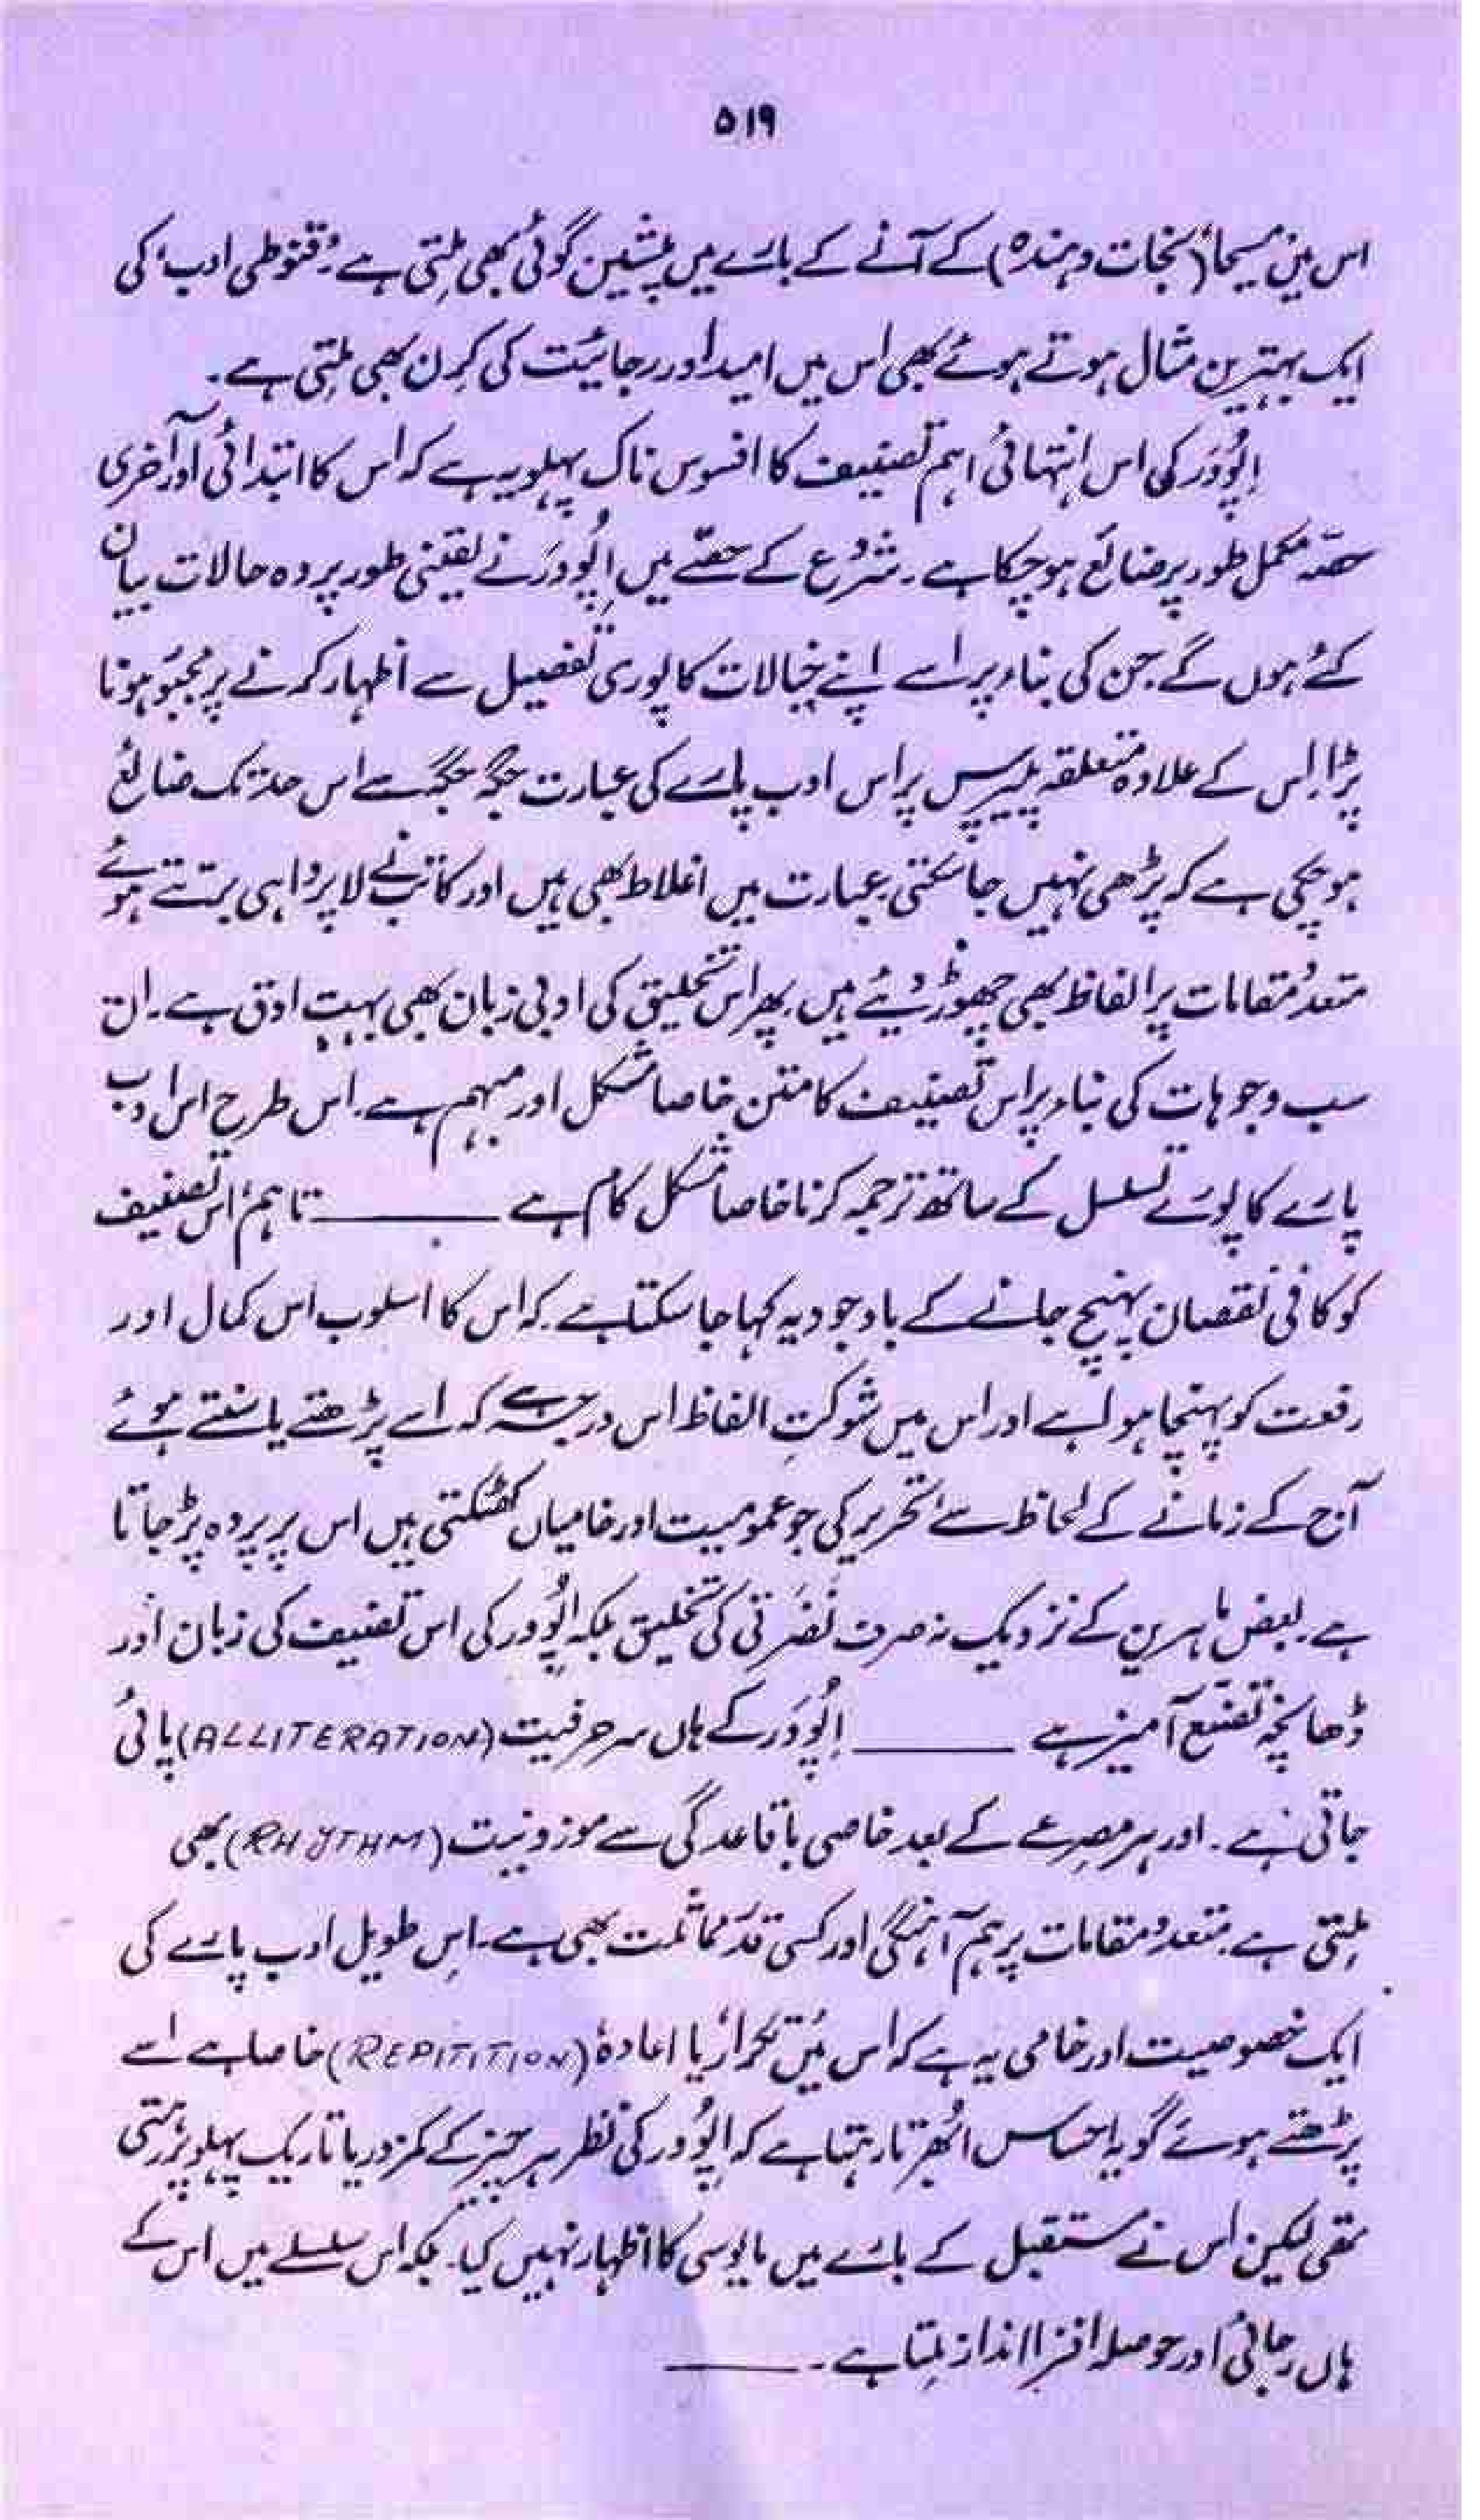 ۵۱۹
اس میں مسیحا' (نجات دہندہ) کے آنے کے بارے میں پیشین گوئی بھی ملتی ہے۔ 'قنوطی ادب' کی
ایک بہترین مثال ہوتے ہوئے بھی اس میں امید اور رجائیت کی کِرن بھی ملتی ہے۔
اِپُووَر کی اس انتہائی اہم تصنیف کا افسوس ناک پہلو یہ ہے کہ اس کا ابتدائی اور آخری
حصّہ مکمل طور پر ضائع ہو چکا ہے۔ شروع کے حصّے میں اِپُووَر نے یقینی طور پر وہ حالات بیان
کئے ہوں گے جن کی بناء پر اسے اپنے خیالات کا پوری تفصیل سے اظہار کرنے پر مجبور ہونا
پڑا۔ اس کے علاوہ متعلقہ پیپرس پر اس ادب پارے کی عبارت جگہ جگہ سے اس حد تک ضائع
ہو چکی ہے کہ پڑھی نہیں جا سکتی۔ عبارت میں اغلاط بھی ہیں اور کاتب نے لاپرواہی برتتے ہوئے
متعدد مقامات پر الفاظ بھی چھوڑ دیئے ہیں۔ پھر اس تخلیق کی ادبی زبان بھی بہت ادق ہے۔ ان
سب وجوہات کی بناء پر اس تصنیف کا متن خاصا مشکل اور مبہم ہے۔ اس طرح اس ادب
پارے کا پورے تسلسل کے ساتھ ترجمہ کرنا خاصا مشکل کام ہے ــــــــ تاہم اس تصنیف
کو کافی نقصان پہنچ جانے کے باوجود یہ کہا جا سکتا ہے کہ اس کا اسلوب اس کمال اور
رفعت کو پہنچا ہوا ہے اور اس میں شوکتِ الفاظ اس درجہ ہے کہ اسے پڑھتے یا سنتے ہوئے
آج کے زمانے کے لحاظ سے تحریر کی جو عمومیت اور خامیاں کھٹکتی ہیں اس پر پردہ پڑ جاتا
ہے۔ بعض ماہرین کے نزدیک نہ صرف نَفَرتی کی تخلیق بلکہ اِپُووَر کی اس تصنیف کی زبان اور
ڈھانچہ تصنع آمیز ہے ــــــــ اِپُووَر کے ہاں سرحرفیت (ALLITERATION) پائی
جاتی ہے۔ اور ہر مصرعے کے بعد خاصی باقاعدگی سے موزونیت (RHYTHM) بھی
ملتی ہے۔ متعدد مقامات پر ہم آہنگی اور کسی قدر مماثلت بھی ہے۔ اس طویل ادب پارے کی
ایک خصوصیت اور خامی یہ ہے کہ اس میں 'تکرار' یا 'اعادہ' (REPITITION) خاصا ہے اسے
پڑھتے ہوئے گویا احساس ابھرتا رہتا ہے کہ اِپُووَر کی نظر ہر چیز کے کمزور یا تاریک پہلو پر رہتی
تھی لیکن اس نے مستقبل کے بارے میں مایوسی کا اظہار نہیں کیا۔ بلکہ اس سلسلے میں اس کے
ہاں رجائی اور حوصلہ افزا انداز ملتا ہے۔ ــــــــ